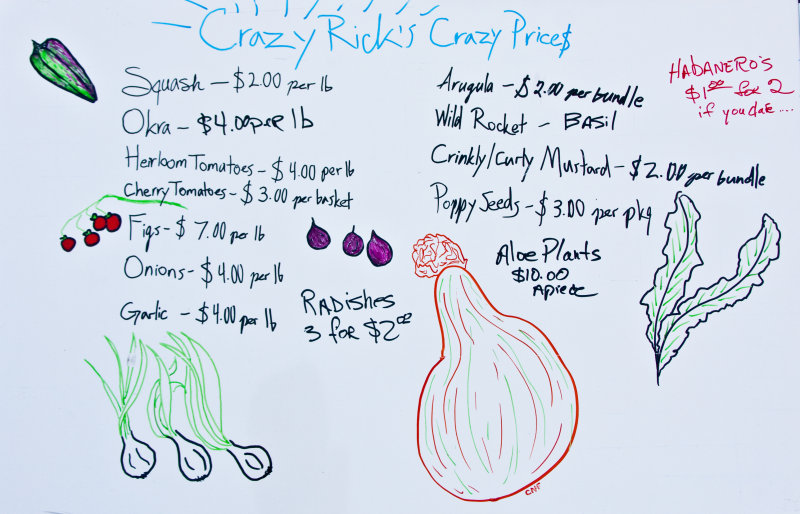 Crazy Rick's Crazy Price$
Squash – $2.00 per lb
Okra – $4.00 per lb
Heirloom Tomatoes – $4.00 per lb
Cherry Tomatoes – $3.00 per basket
Figs – $7.00 per lb
Onions – $4.00 per lb
Garlic – $4.00 per lb
Radishes
3 for $2.00
Arugula – $2.00 per bundle
Wild Rocket – Basil
Crinkly/Curly Mustard – $2.00 per bundle
Poppy Seeds – $3.00 per pkg
Aloe Plants
$10.00
Apiece
Habanero's
$1.00 for 2
if you dare...
CNF